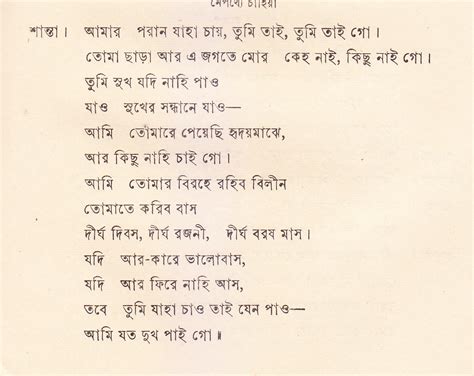 নেপথ্যে চাহিয়া
শান্তা। আমার পরান যাহা চায়, তুমি তাই, তুমি তাই গো।
তোমা ছাড়া আর এ জগতে মোর কেহ নাই, কিছু নাই গো।
তুমি সুখ যদি নাহি পাও
যাও সুখের সন্ধানে যাও—
আমি তোমারে পেয়েছি হৃদয়মাঝে,
আর কিছু নাহি চাই গো।
আমি তোমার বিরহে রহিব বিলীন
তোমাতে করিব বাস
দীর্ঘ দিবস, দীর্ঘ রজনী, দীর্ঘ বরষ মাস।
যদি আর-কারে ভালোবাস,
যদি আর ফিরে নাহি আস,
তবে তুমি যাহা চাও তাই যেন পাও—
আমি যত দুখ পাই গো॥